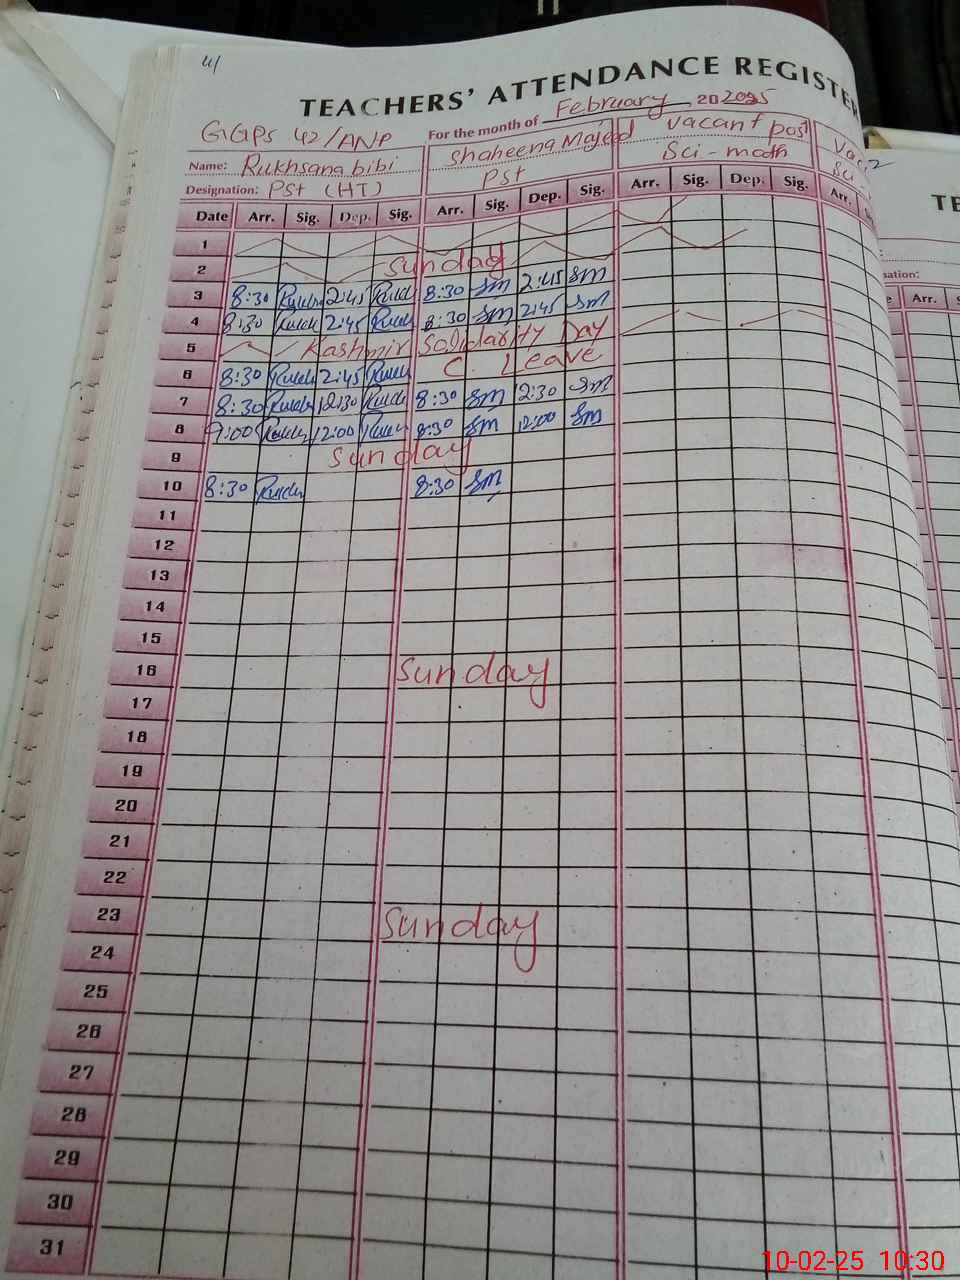 4/
TEACHERS' ATTENDANCE REGISTE
GGPS 42/ANP
For the month of February 20 2025
Name: Rukhsana bibi
Shaheena Majeed
Vacant post
Vac
Designation: PST (HT)
PST
Sci - math
Sci
Date Arr. Sig. Dep. Sig. Arr. Sig. Dep. Sig. Arr. Sig. Dep. Sig. Arr.
1
2 Sunday
3 8:30 Rukh 2:45 Rukh 8:30 SM 2:45 SM
4 8:30 Rukh 2:45 Rukh 8:30 SM 2:45 SM
5 Kashmir Solidarity Day
6 8:30 Rukh 2:45 Rukh C. Leave
7 8:30 Rukh 12:30 Rukh 8:30 SM 12:30 SM
8 9:00 Rukh 12:00 Rukh 8:30 SM 12:00 SM
9 Sunday
10 8:30 Rukh 8:30 SM
11
12
13
14
15
16 Sunday
17
18
19
20
21
22
23 Sunday
24
25
26
27
28
29
30
31
TE
nation:
Arr. S
10-02-25 10:30